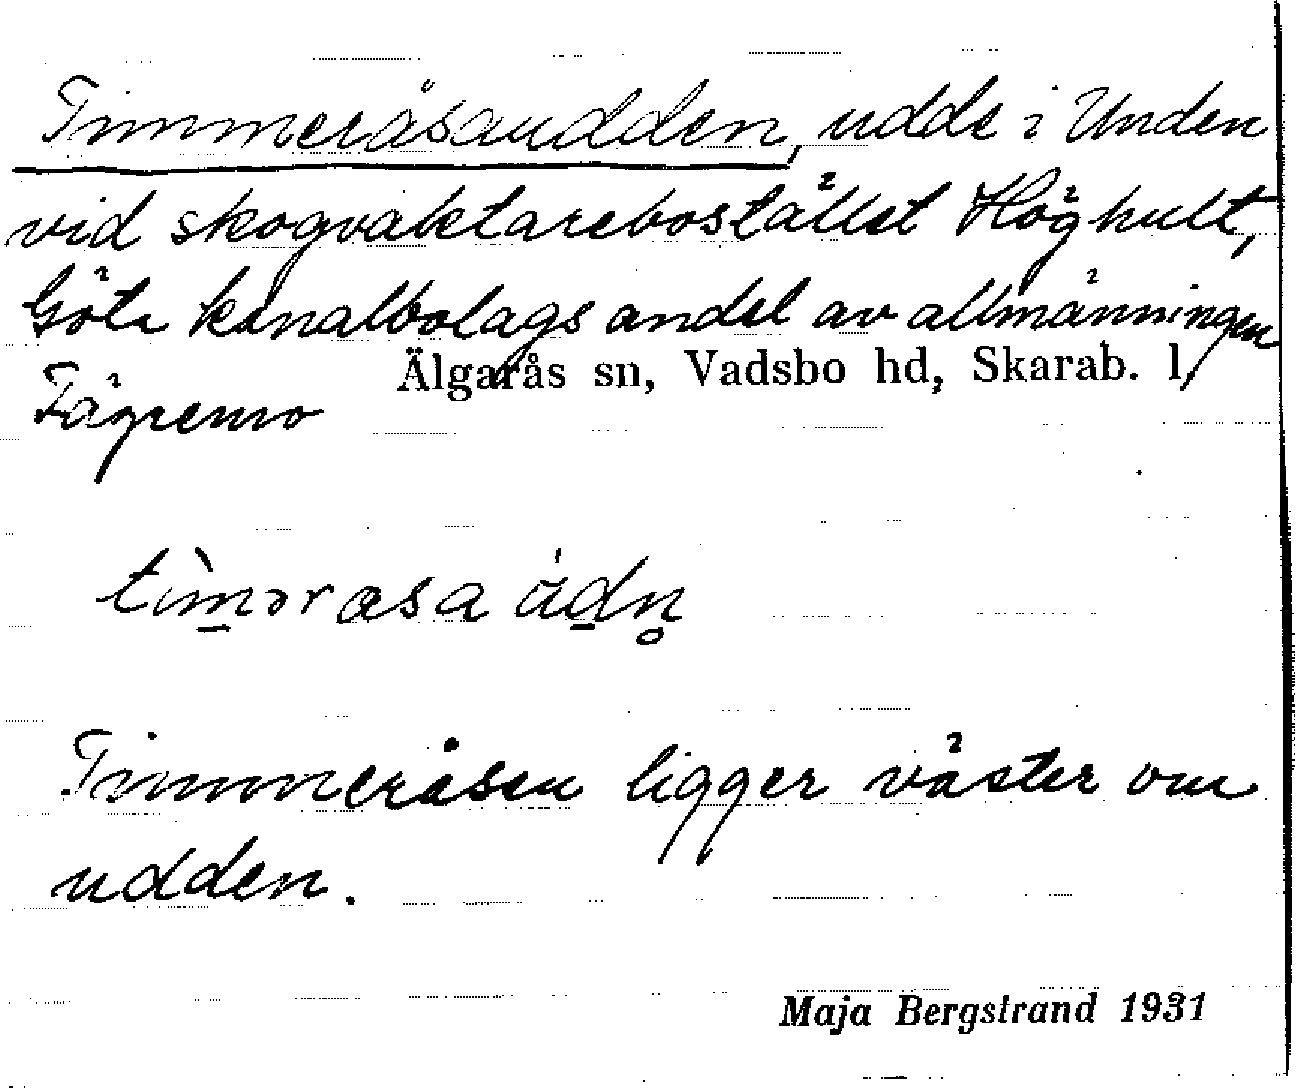 Timmeråsaudden, udde i Unden
vid skogvaktarebostället Höghult,
Göta kanalbolags andel av allmänningen
Älgarås sn, Vadsbo hd, Skarab. l,
Fägremo
Timmeråsen ligger väster om
udden.
Maja Bergstrand 1931